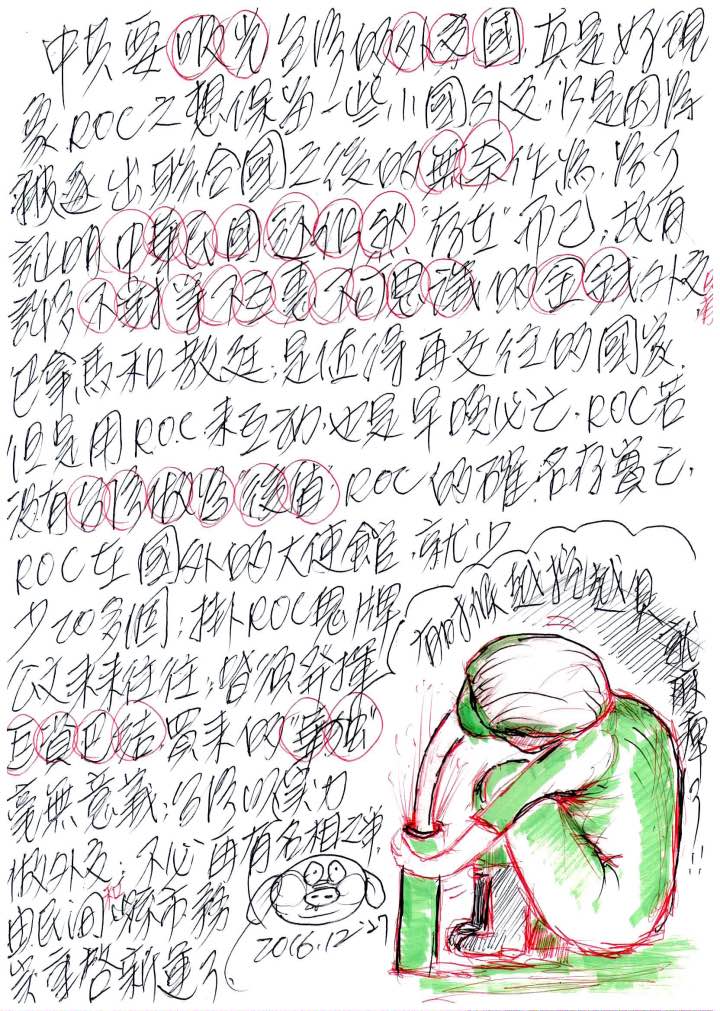 中共要吸光台灣的外交國,真是好現
象,ROC之想保留一些小國外交,乃是因為
被逐出聯合國之後的無奈作為,為了
証明中華民國還依然"存在"而已,故有
許多不對等不互惠不可思議的金錢外交
巴拿馬和教廷,是值得再交往的國家,
但是用ROC來互動,也是早晚必亡,ROC若
沒有台灣做為"後偵",ROC的確名存實亡,
ROC在國外的大使館,就少
少20多個,掛ROC鬼牌
公文來來往往,皆須發揮
巨資巴結,買來的"尊嚴"
毫無意義,台灣以實力
做外交,不必再有名相之爭
由民間和縣市務
實事啓新運了
2016.12.27
越挖越